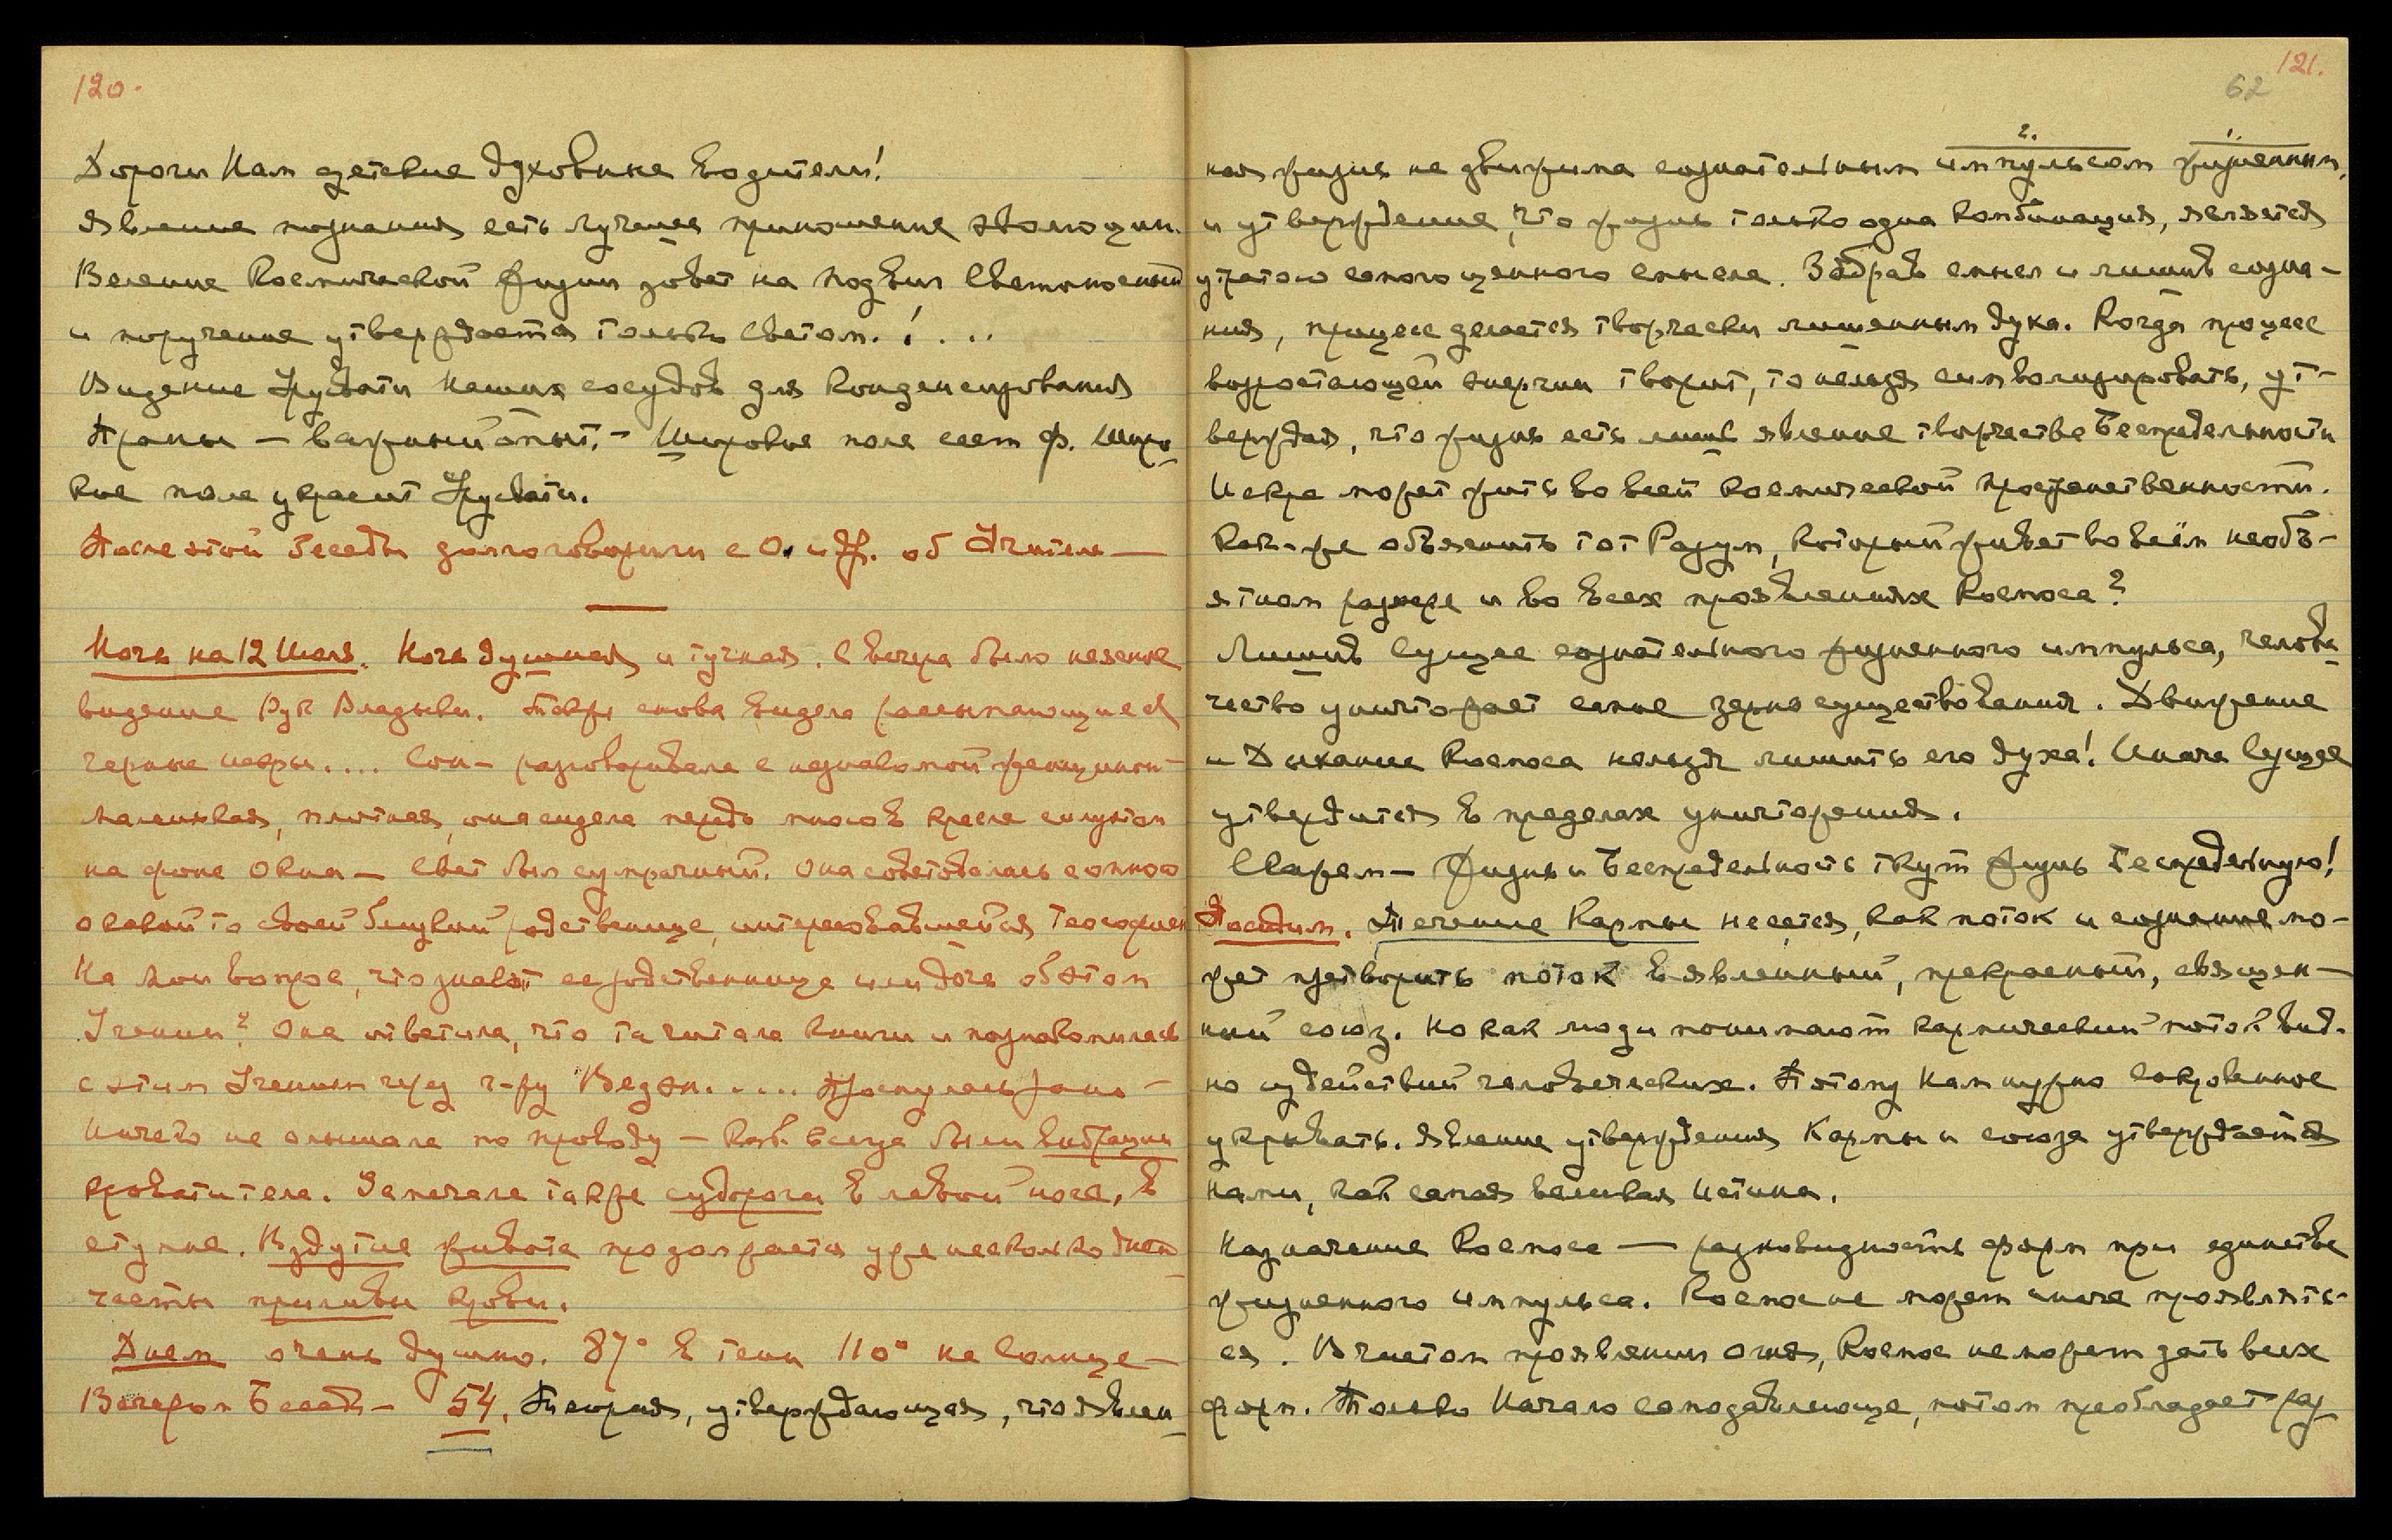 120.
Дороги Нам детские духовные водители!
Явление познания есть лучшее приношение эволюции.
Веление Космической Жизни зовет на подвиг Светоносный
и поручение утверждается только Светом. ! ...
Видение Урусвати Наших сосудов для конденсирования
Праны — важный опыт. — Широкое поле сеет Ф. Широ-
кое поле украсит Урусвати.
После этой Беседы долго говорили с О. и Ю. об —
Ночь на 12 Июля. Ночь душная и тучная. С вечера было неясное
видение Рук Владыки. Также снова видела рассыпающиеся
черные искры.... Сон — разговаривала с незнакомой женщиной —
маленькая, плотная, она сидела передо мною в кресле силуэтом
на фоне окна — свет был сумрачный. Она советовалась со мною
о какой то своей близкой родственнице, интересовавшейся Теософией
На мой вопрос, что знает ее родственница или дочь об этом
Учении? Она ответила, что та читала книги и познакомилась
с этим Учением чрез г-жу Безан..... Проснулась рано —
Ничего не слышала по проводу — как всегда были вибрации
кровати и тела. Замечала также судороги в левой ноге, в
ступне. Вздутие живота продолжается уже несколько дней
часты приливы крови.
Днем очень душно. 87° в тени 110° на Солнце —
Вечером Беседа — 54. Теория, утверждающая, что явлен-
121.
62
2. 1.
ная жизнь не движима сознательным импульсом жизненным,
и утверждение, что жизнь только одна комбинация, является
утратою самого ценного смысла. Забрав смысл и лишив созна-
ния, процесс делается творчески лишенным духа. Когда процесс
возростающей энергии творит, то нельзя символизировать, ут-
верждая, что жизнь есть лишь явление творчества Беспредельности
Искра может жить во всей Космической пространственности.
Как-же объяснить тот Разум, который живет во всём необъ-
ятном размере и во всех проявлениях Космоса?
Лишив Сущее сознательного жизненного импульса, челове-
чество уничтожает самое зерно существования. Движение
и Дыхание Космоса нельзя лишить его духа! Иначе Сущее
утвердится в пределах уничтожения.
Скажем — Жизнь и Беспредельность ткут Жизнь Беспредельную!
Посидим. Течение Кармы несется, как поток и сознание мо-
жет претворить поток в явленный, прекрасный, священ-
ный союз. Но как люди понимают кармический поток вид-
но из действий человеческих. Потому Нам нужно Сокровенное
укрывать. Явление утверждения Кармы и союза утверждается
Нами, как самая великая Истина.
Назначение Космоса — разновидность форм при единстве
жизненного импульса. Космос не может иначе проявлять-
ся. В чистом проявлении огня, Космос не может дать всех
форм. Только Начало самодавлеюще, потом преобладает раз